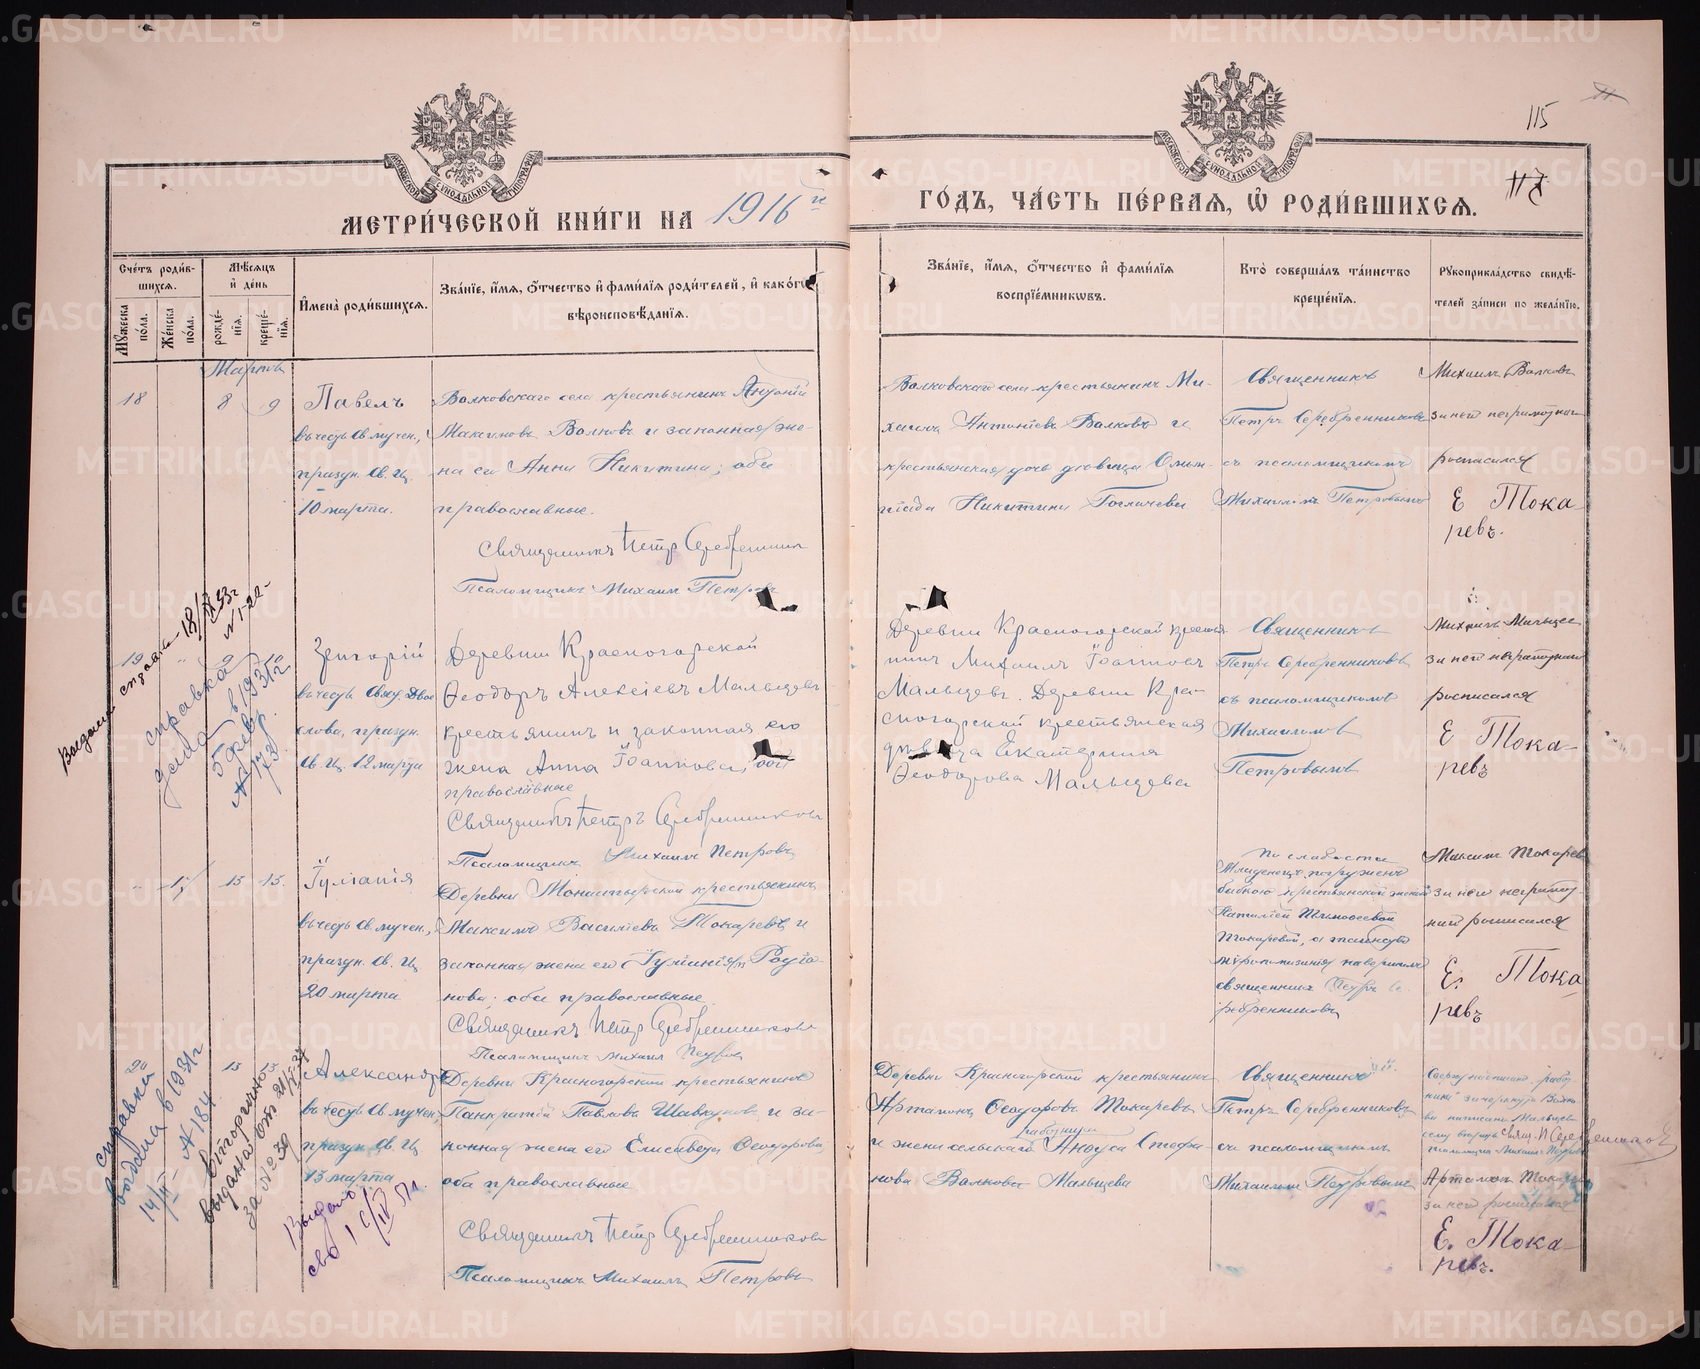 115
МОСКОВСКОЙ СѴНОДАЛЬНОЙ ТИПОГРАФІИ
МОСКОВСКОЙ СѴНОДАЛЬНОЙ ТИПОГРАФІИ
МЕТРИ́ЧЕСКОЙ КНИ́ГИ НА 1916 й
ГО́ДЪ, ЧА́СТЬ ПЕ́РВАЯ, Ѡ҆ РОДИ́ВШИХСЯ.
Сче́тъ роди́в-
шихся.
Мꙋ́жеска по́ла.
Же́нска по́ла.
Мѣ́сяцъ и҆ де́нь
рожде́-нїя.
креще́-нїя.
И҆мена̀ роди́вшихся.
Зва́нїе, и҆́мя, ѻ҆́тчество и҆ фами́лїя роди́телей, и҆ како́гѡ
вѣроисповѣ́данїя.
Зва́нїе, и҆́мя, ѻ҆́тчество и҆ фами́лїя
воспрїе́мникѡвъ.
Кто̀ соверша́лъ та́инство
креще́нїя.
Рꙋкоприкла́дство свидѣ́-
телей за́писи по жела́нїю.
Марта
18
8
9
Павелъ
въ честь св. мучен.,
праздн. св. Ц.
10 марта.
Волковскаго села крестьянинъ Антоній
Максимовъ Волковъ и законная же-
на его Анна Никитина; оба
православные.
Священникъ Петръ Серебренниковъ
Псаломщикъ Михаилъ Петровъ
Волковскаго села крестьянинъ Ми-
хаилъ Антоніевъ Волковъ и
крестьянская дочь девица Олим-
піада Никитина
Священникъ
Петръ Серебренниковъ
съ псаломщикомъ
Михаиломъ Петровымъ
Михаилъ Волковъ
за него неграмотнаго
росписался
Е Тока-
ревъ.
19
9
Григорій
въ честь Двое-
слова, праздн.
св. Ц. 12 марта
Деревни Красногорской
Ѳеодоръ Алексіевъ Мальцевъ
крестьянинъ и законная его
жена Анна Іоаннова, оба
православные
Священникъ Петръ Серебренниковъ
Псаломщикъ Михаилъ Петровъ
Деревни Красногорской крестья-
нинъ Михаилъ Іоанновъ
Мальцевъ. Деревни Кра-
сногорской крестьянская
девица Екатерина
Ѳеодорова Мальцева
Священникъ
Петръ Серебренниковъ
съ псаломщикомъ
Михаиломъ
Петровымъ
Михаилъ Мальцев
за него неграмотный
росписался
Е Тока-
ревъ
15
15.
Іуліанія
въ честь св. мучен.,
праздн. св. Ц.
20 марта
Деревни Монастырской крестьянинъ
Максимъ Василіевъ Токаревъ и
законная жена его Іуліанія Родіо-
нова; оба православные
Священникъ Петръ Серебренниковъ
Псаломщикъ Михаилъ Петровъ
По слабости
младенецъ погруженъ
бабкою крестьянской женой
Наталіей Тимоѳеевой
Токаревой, а таинство
мѵропомазанія совершилъ
священникъ Петръ Се-
ребренниковъ
Максимъ Токарев
за него неграмот-
ный росписался
Е. Тока
ревъ
20
13
Александръ
въ честь св. мучен.,
праздн. св. Ц.
13 марта
Деревни Красногорской крестьянинъ
Панкратій Павловъ Шавкуновъ и за-
конная жена его Елисавета Ѳеодорова
оба православные
Священникъ Петръ Серебренниковъ
Псаломщикъ Михаилъ Петровъ
Деревни Красногорской крестьянинъ
Артамонъ Ѳеодоровъ Токаревъ
и жена сельскаго Анѳуса Стефа-
нова Волкова Мальцева
Священникъ
Петръ Серебренниковъ
съ псаломщикомъ
Михаиломъ Петровымъ
Артамонъ Токарев
за него росписался
Е. Тока-
ревъ.
Выдана справка 18/IX 53г
N 1-22
справка
дана в 1931г
5 февр
№ 173
справка
выдана в 1931г
14/III № 184
Вторично
выдана
за № 39
Выдано
сво 1